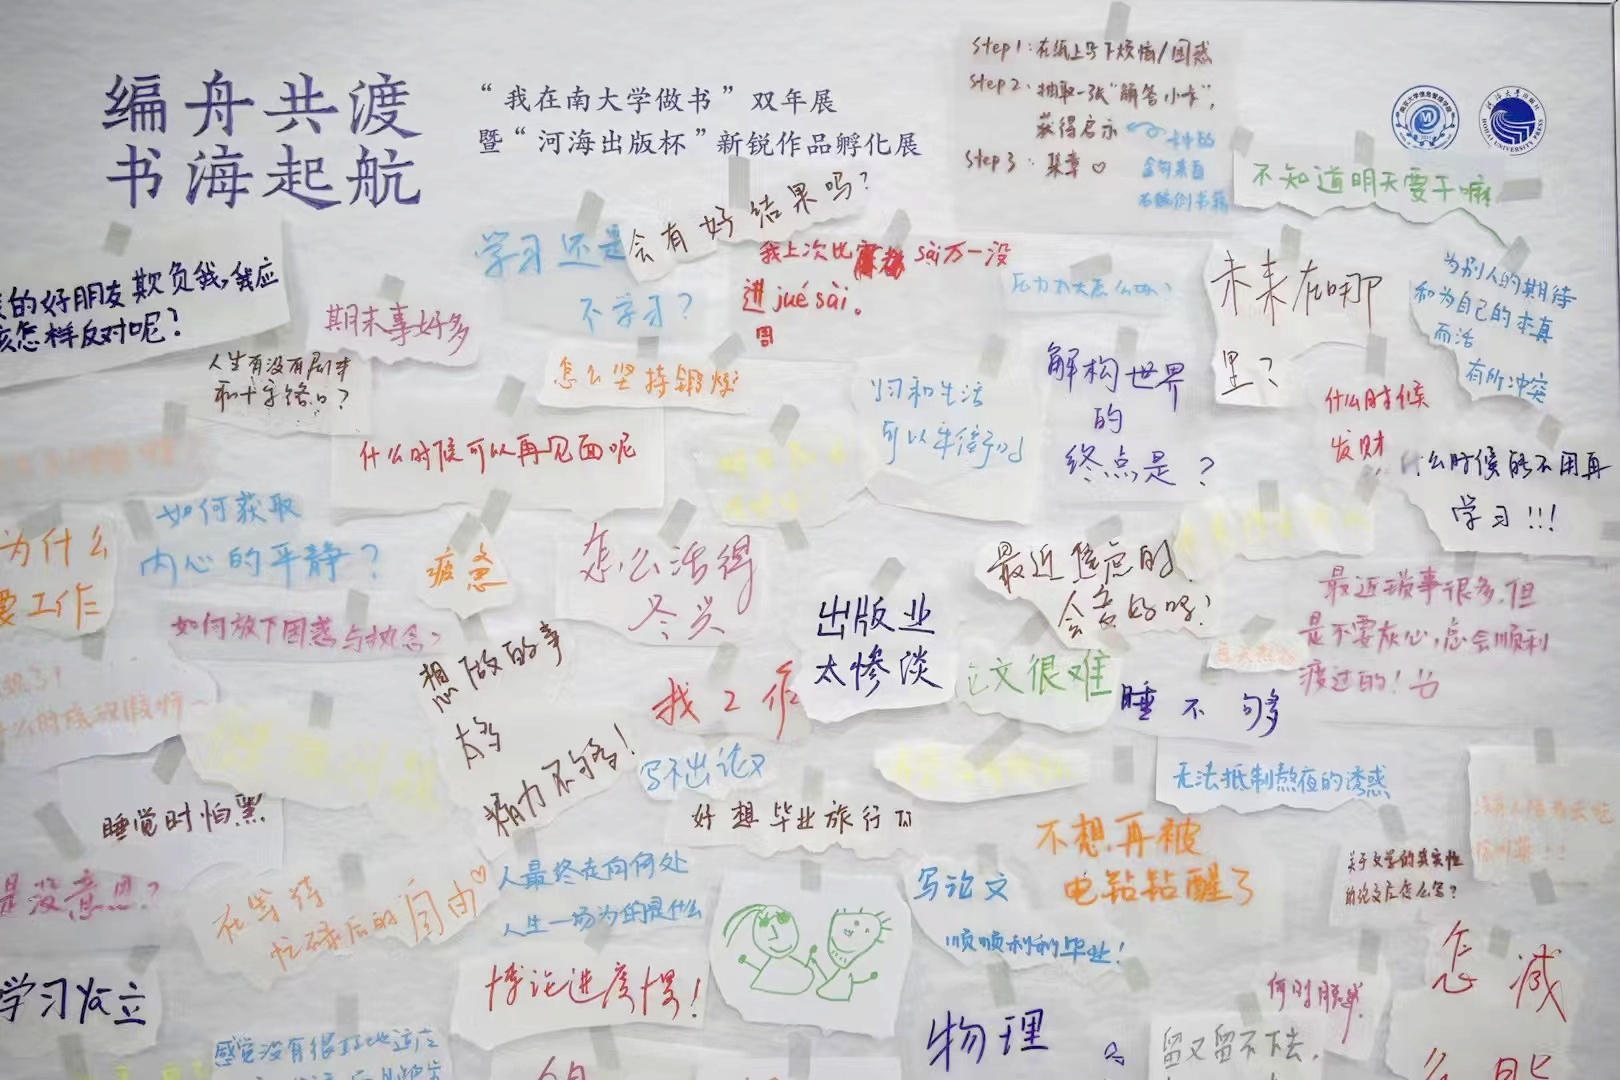 编舟共渡
书海起航
“我在南大学做书”双年展
暨“河海出版杯”新锐作品孵化展
Step1:在纸上写下烦恼/困惑
Step2、抽取一张“解答小卡”,
获得启示
Step3:集章♡
卡中的
金句来自
HOHAI UNIVERSITY PRESS
不知道明天要干嘛
会有好结果吗?
学习还是
不学习?
我上次比赛 sài万一没
进juésài。
周
压力太大怎么办?
未来在哪
里?
为别人的期待
和为自己的本真
而活
有所冲突
的好朋友欺负我,我应
该怎样反对呢?
期末事好多
人生有没有剧本
和十字路口?
怎么坚持锻炼
解构世界
的
终点是?
什么时候
发财
什么时候可以再见面呢
学习和生活
可以平衡吗
么时候能不用再
学习!!!
为什么
要工作
如何获取
内心的平静?
疲惫
怎么活得
尽兴
最近焦虑的
会变好吗?
最近琐事很多,但
是不要灰心,总会顺利
渡过的!
如何放下困惑与执念?
想做的事
太多
精力不够!
出版业
太惨淡
论文很难
睡不够
找工作
写不出论文
无法抵制熬夜的诱惑
睡觉时怕黑
好想毕业旅行
不想再被
电钻钻醒了
关于文学的真实性
的论文应怎么写?
是没意思?
在等待
忙碌后的自由♡
人最终走向何处
人生一场为的是什么
写论文
顺顺利利毕业!
博论进度慢!
学习
物理
何时脱单
怎减
感觉没有很
留又留不下去,